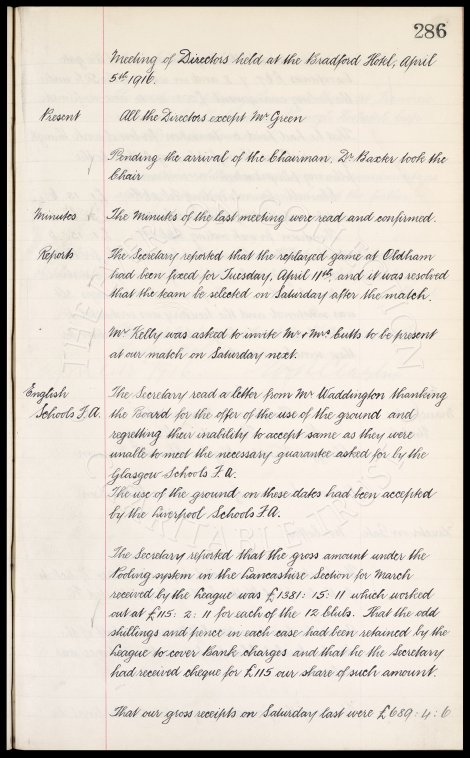 286
Meeting of Directors held at the Bradford Hotel, April
5th 1916.
Present All the Directors except Mr Green
Pending the arrival of the Chairman, Dr Baxter took the
Chair
Minutes The Minutes of the last meeting were read and confirmed.
Reports The Secretary reported that the replayed game at Oldham
had been fixed for Tuesday, April 11th, and it was resolved
that the team be selected on Saturday after the match.
Mr Kelly was asked to invite Mr & Mrs Cutts to be present
at our match on Saturday next.
English The Secretary read a letter from Mr Waddington thanking
Schools F.A. the Board for the offer of the use of the ground and
regretting their inability to accept same as they were
unable to meet the necessary guarantee asked for by the
Glasgow Schools F.A.
The use of the ground on these dates had been accepted
by the Liverpool Schools F.A.
The Secretary reported that the gross amount under the
Pooling system in the Lancashire Section for March
received by the League was £1381: 15: 11 which worked
out at £115: 2: 11 for each of the 12 Clubs. That the odd
shillings and pence in each case had been retained by the
League to cover Bank charges and that he the Secretary
had received cheque for £115 our share of such amount.
That our gross receipts on Saturday last were £689: 4: 6